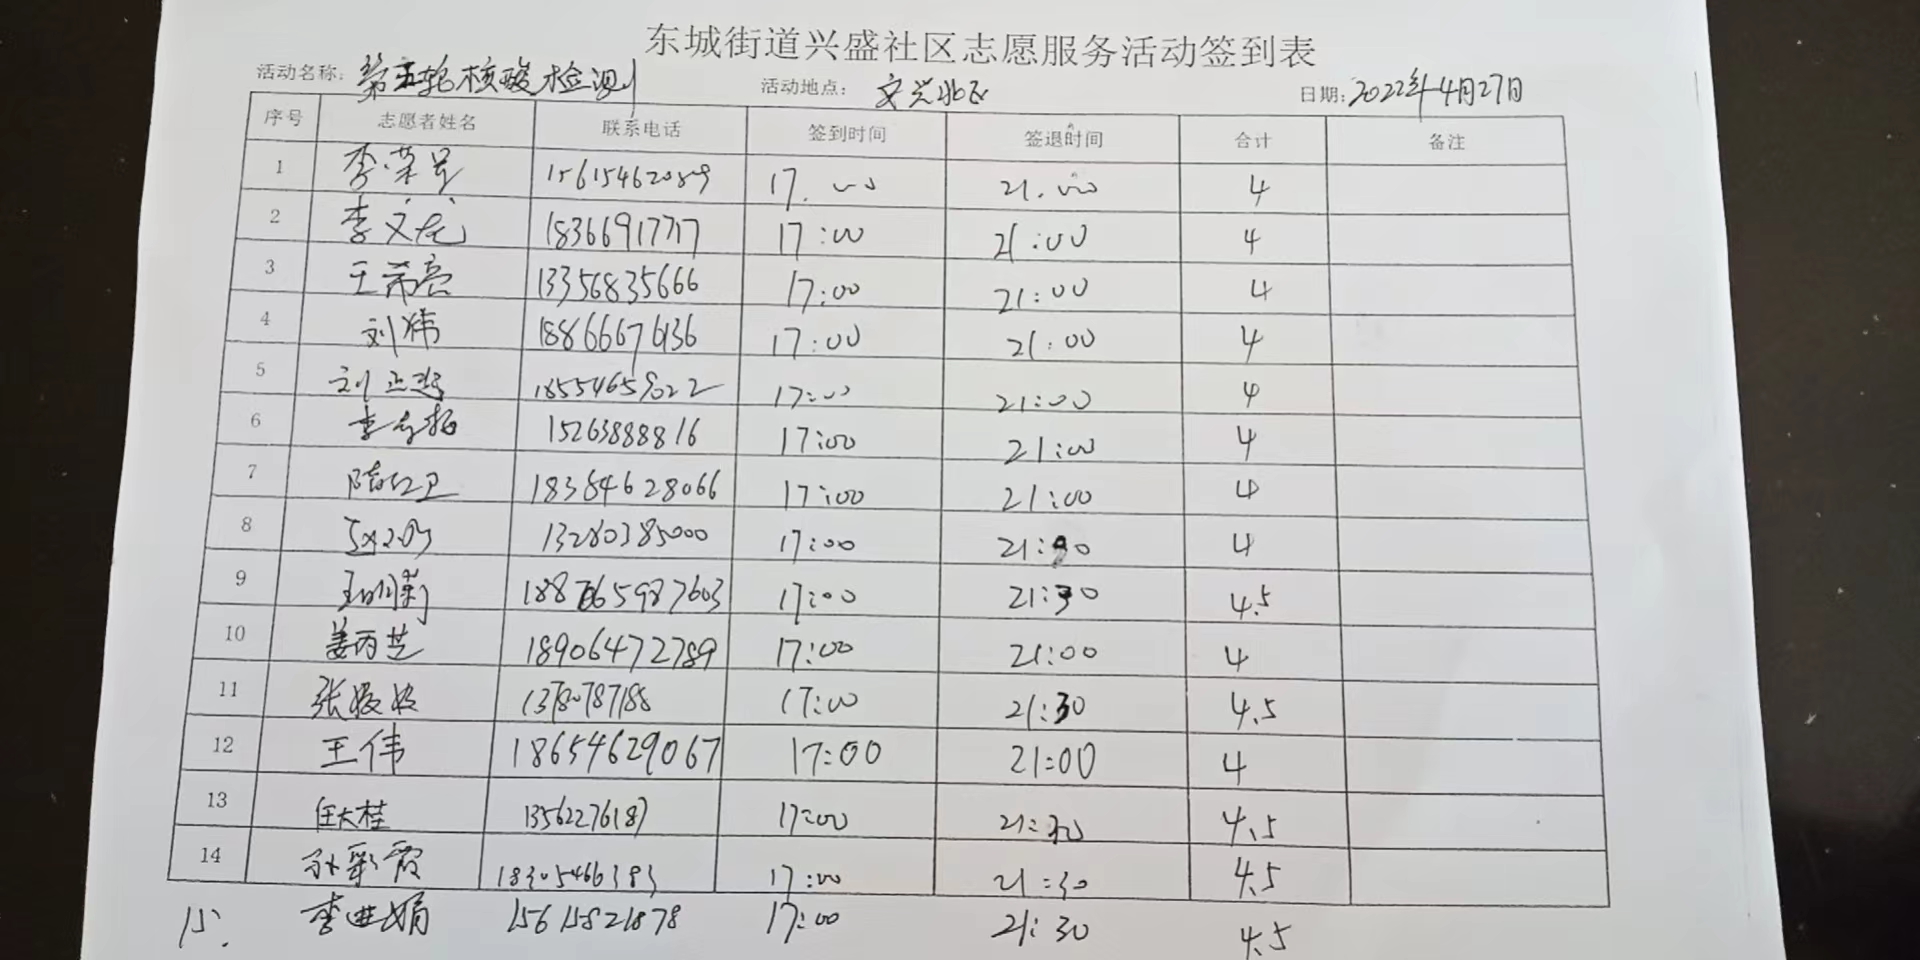 东城街道兴盛社区志愿服务活动签到表
活动名称：第五轮核酸检测 活动地点：文兴北区 日期：2022年4月27日
序号 志愿者姓名 联系电话 签到时间 签退时间 合计 备注
1 李荣 15615462089 17:00 21:00 4
2 李文龙 18366917717 17:00 21:00 4
3 王希亮 13356835666 17:00 21:00 4
4 刘伟 18866676136 17:00 21:00 4
5 刘 18554659022 17:00 21:00 4
6 李 15263888816 17:00 21:00 4
7 陈红卫 18384628066 17:00 21:00 4
8 13280385000 17:00 4
9 王 17:00 21:30 4.5
10 姜丙芝 18906472789 17:00 21:00 4
11 张姣姣 13780787188 17:00 21:30 4.5
12 王伟 18654629067 17:00 21:00 4
13 任大桂 13562276187 17:00 21:30 4.5
14 孙彩霞 18305466383 17:00 21:30 4.5
15. 李 娟 15615821878 17:00 21:30 4.5